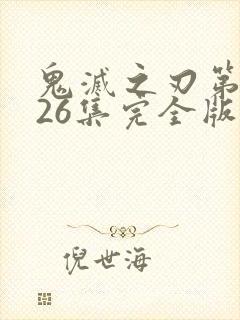 鬼滅之刃第
26集完全版
倪世海